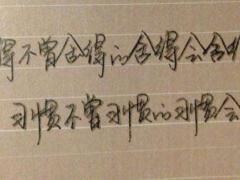 得不曾舍得的舍得会舍
习惯不曾习惯的习惯会